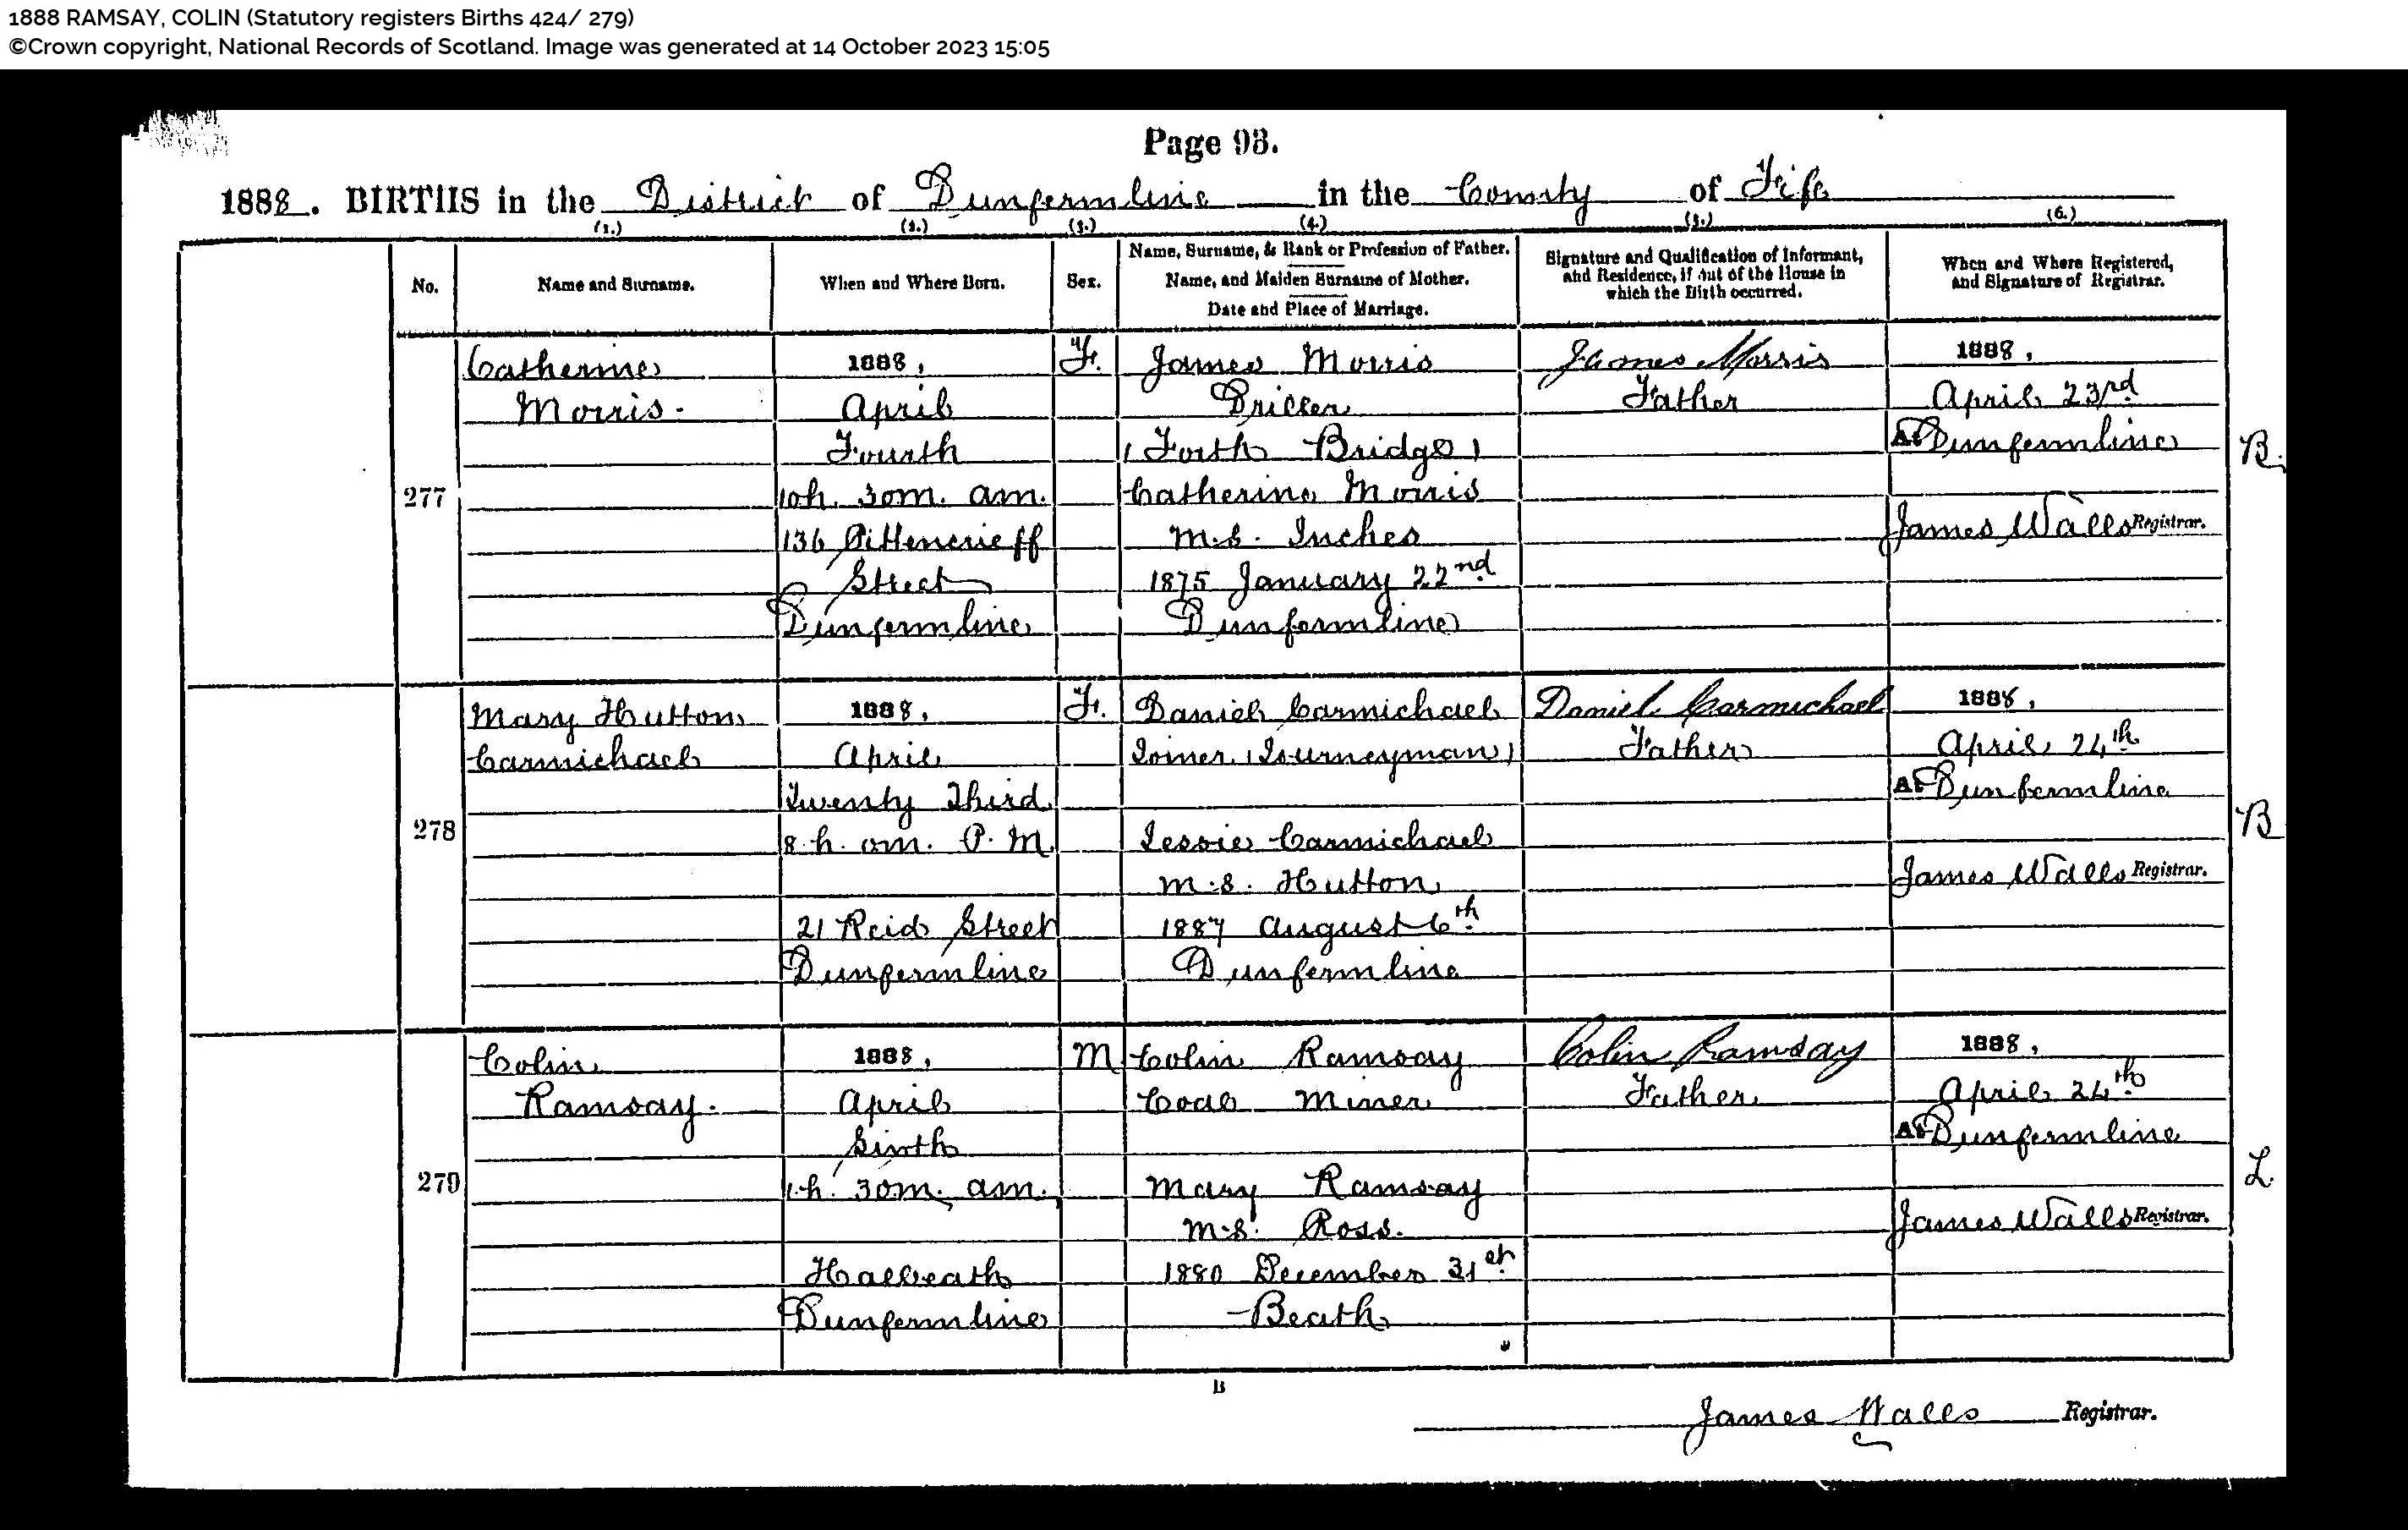 1888 RAMSAY, COLIN (Statutory registers Births 424/ 279)
©Crown copyright, National Records of Scotland. Image was generated at 14 October 2023 15:05
Page 93.
1888. BIRTHS in the District of Dunfermline in the County of Fife
(1.) (2.) (3.) (4.) (5.) (6.)
No.
Name and Surname.
When and Where Born.
Sex.
Name, Surname, & Rank or Profession of Father.
Name, and Maiden Surname of Mother.
Date and Place of Marriage.
Signature and Qualification of Informant,
and Residence, if out of the House in
which the Birth occurred.
When and Where Registered,
and Signature of Registrar.
277
Catherine
Morris.
1888,
April
Fourth
10h. 30m. am.
136 Pittencrieff
Street
Dunfermline
F.
James Morris
Driller
(Forth Bridge)
Catherine Morris
M.S. Inches
1875 January 22nd
Dunfermline
James Morris
Father
1888,
April 23rd
At Dunfermline
James Walls Registrar.
B.
278
Mary Hutton
Carmichael
1888,
April
Twenty Third
8 h. 0m. P.M.
21 Reid Street
Dunfermline
F.
Daniel Carmichael
Joiner (Journeyman)
Jessie Carmichael
M.S. Hutton
1887 August 6th
Dunfermline
Daniel Carmichael
Father
1888,
April 24th
At Dunfermline
James Walls Registrar.
B
279
Colin
Ramsay.
1888,
April
Sixth
1.h. 30m. am.
Halbeath
Dunfermline
M
Colin Ramsay
Coal Miner
Mary Ramsay
M.S. Ross.
1880 December 31st
Beath
Colin Ramsay
Father
1888,
April 24th
At Dunfermline
James Walls Registrar.
L.
B
James Walls Registrar.